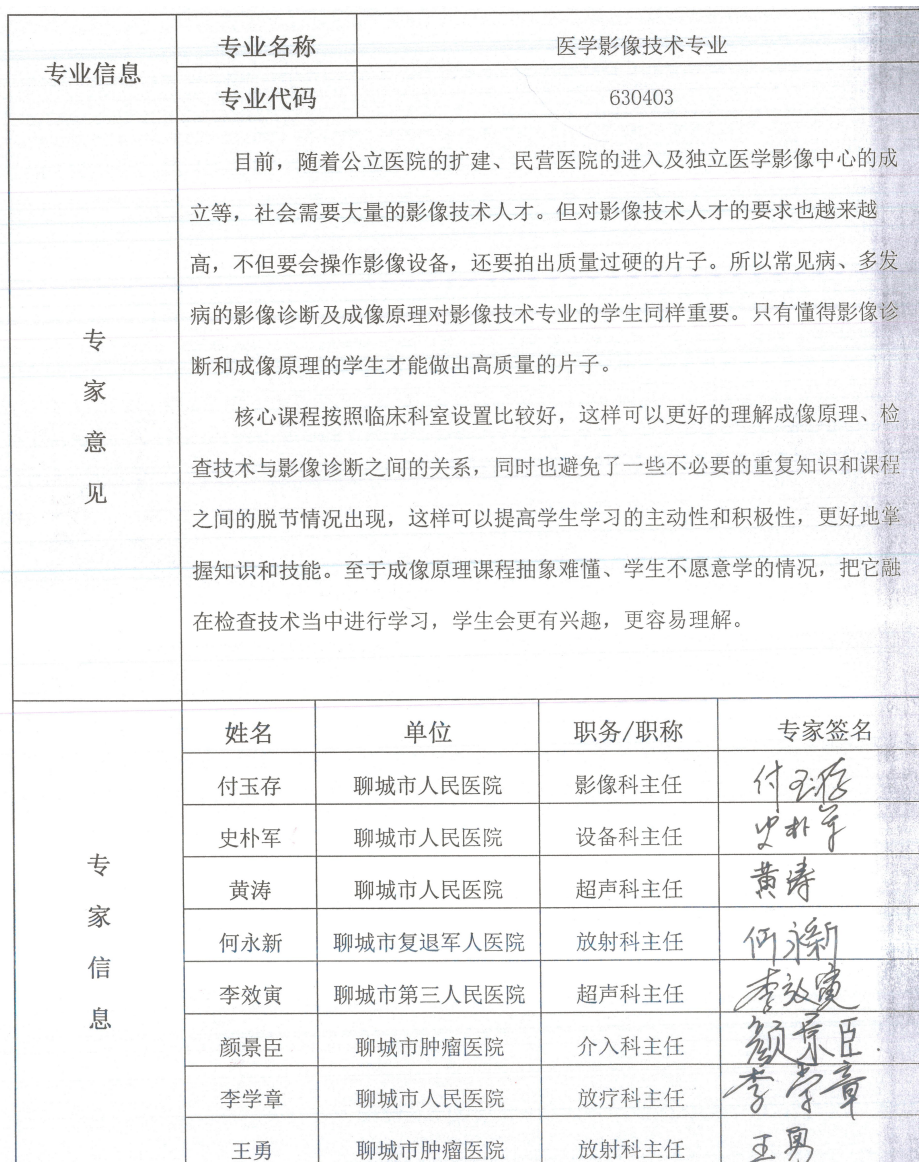 专业信息
专业名称 医学影像技术专业
专业代码 630403
专家意见
目前，随着公立医院的扩建、民营医院的进入及独立医学影像中心的成
立等，社会需要大量的影像技术人才。但对影像技术人才的要求也越来越
高，不但要会操作影像设备，还要拍出质量过硬的片子。所以常见病、多发
病的影像诊断及成像原理对影像技术专业的学生同样重要。只有懂得影像诊
断和成像原理的学生才能做出高质量的片子。
核心课程按照临床科室设置比较好，这样可以更好的理解成像原理、检
查技术与影像诊断之间的关系，同时也避免了一些不必要的重复知识和课程
之间的脱节情况出现，这样可以提高学生学习的主动性和积极性，更好地掌
握知识和技能。至于成像原理课程抽象难懂、学生不愿意学的情况，把它融
在检查技术当中进行学习，学生会更有兴趣，更容易理解。
专家信息
姓名 单位 职务/职称 专家签名
付玉存 聊城市人民医院 影像科主任 付玉存
史朴军 聊城市人民医院 设备科主任 史朴军
黄涛 聊城市人民医院 超声科主任 黄涛
何永新 聊城市复退军人医院 放射科主任 何永新
李效寅 聊城市第三人民医院 超声科主任 李效寅
颜景臣 聊城市肿瘤医院 介入科主任 颜景臣
李学章 聊城市人民医院 放疗科主任 李学章
王勇 聊城市肿瘤医院 放射科主任 王勇